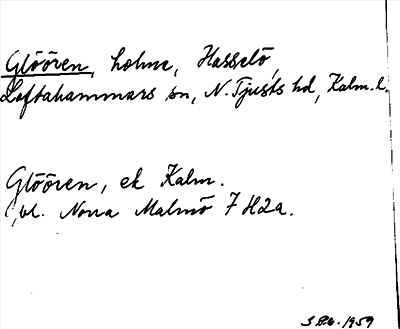 Glöören, holme, Hasselö,
Loftahammars sn, N. Tjusts hd, Kalm. l.
Glöören, ek Kalm.
bl. Norra Malmö 7 H2a.
1959